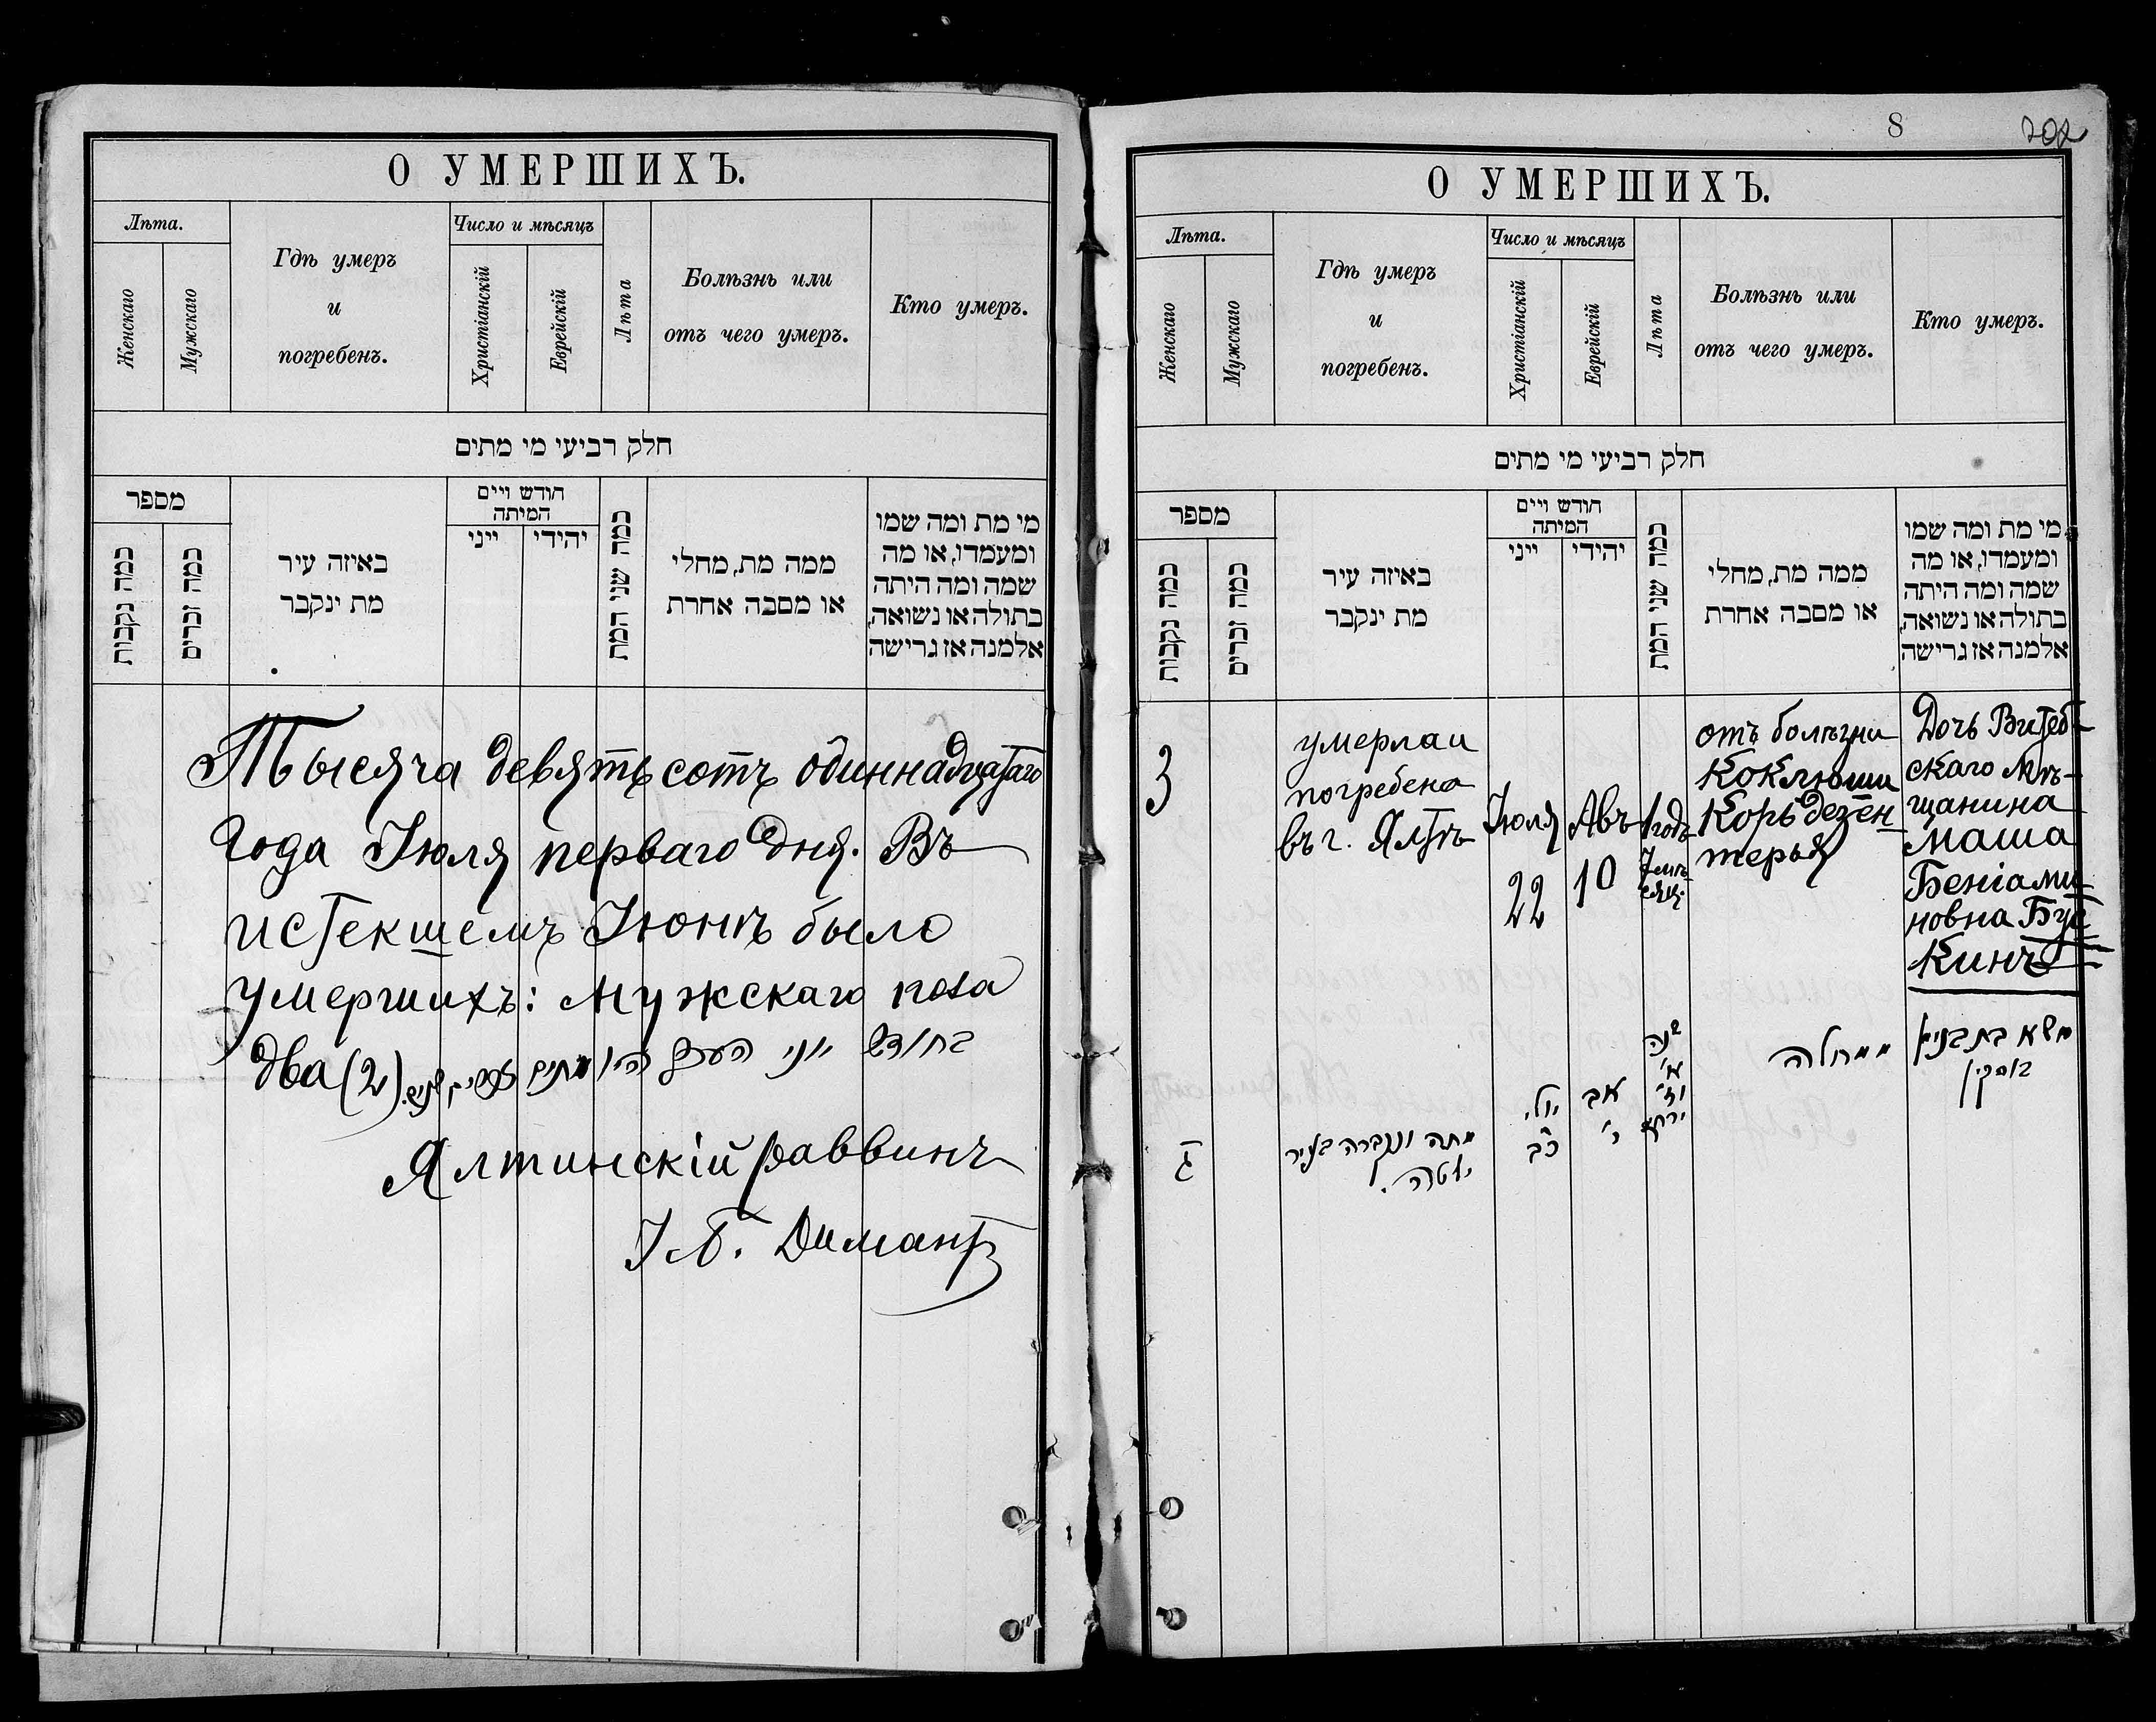 О УМЕРШИХЪ.
Лѣта.
Женскаго
Мужскаго
Гдѣ умеръ
и
погребенъ.
Число и мѣсяцъ
Христіанскій
Еврейскій
Лѣта
Болѣзнь или
отъ чего умеръ.
Кто умеръ.
חלק רביעי מי מתים
מספר
כמה נקבות
כמה זכרים
באיזה עיר
מת ינקבר
חודש ויים
המיתה
ייני
יהידי
כמה שני המת
ממה מת, מחלי
או מסבה אחרת
מי מת ומה שמו
ומעמדו, או מה
שמה ומה היתה
בתולה או נשואה,
אלמנה אז גרישה
Тысяча девятьсотъ одиннадцатаго
Года Іюля перваго дня. Въ
истекшемъ Іюнѣ было
умершихъ: Мужскаго пола
два (2).
בחודש יוני העבר היו מתים
Ялтинскій раввинъ
Димантъ
8
202
О УМЕРШИХЪ.
Лѣта.
Женскаго
Мужскаго
Гдѣ умеръ
и
погребенъ.
Число и мѣсяцъ
Христіанскій
Еврейскій
Лѣта
Болѣзнь или
отъ чего умеръ.
Кто умеръ.
חלק רביעי מי מתים
מספר
כמה נקבות
כמה זכרים
באיזה עיר
מת ינקבר
חודש ויים
המיתה
ייני
יהידי
כמה שני המת
ממה מת, מחלי
או מסבה אחרת
מי מת ומה שמו
ומעמדו, או מה
שמה ומה היתה
בתולה או נשואה,
אלמנה אז גרישה
3
умерла и
погребена
въ г. Ялтѣ
Іюля
22
Авъ
10
1 годъ
7 мѣ-
сяц.
отъ болѣзни
Коклюши
Корь дезен-
терья
Дочь Витеб-
скаго Мѣ-
щанина
Маша
Беніами-
новна Бус-
кинъ
ג
מתה ונקברה בעיר
יאלטה.
יולי
כב
אב
י'
שנה
א'
וז'
ירחים
ממחלה
מאשא בת בנימין
בוסקין